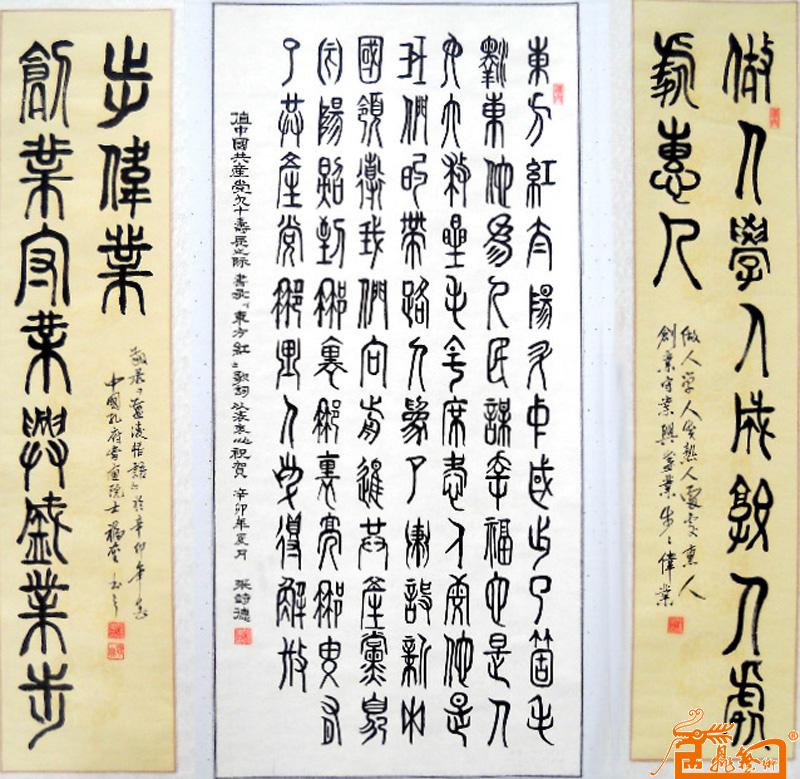 做人學人成熟人處
處惠人
做人学人成熟人處處惠人
創業守業興盛業步步偉業
東方紅太陽升中國出了箇毛
澤東他為人民謀幸福他是人
民大救星毛主席愛人民他是
我們的帶路人為了建設新中
國領導我們向前進共產黨象
太陽照到哪裏哪裏亮哪里有
了共產党哪里人民得解放
值中國共産党九十壽辰之際 書录《東方紅》歌詞 以表衷心祝賀 辛卯年夏月 張詩德
創業守業興盛業步
步偉業
悟語》於辛卯年春
中國孔府書畫院士